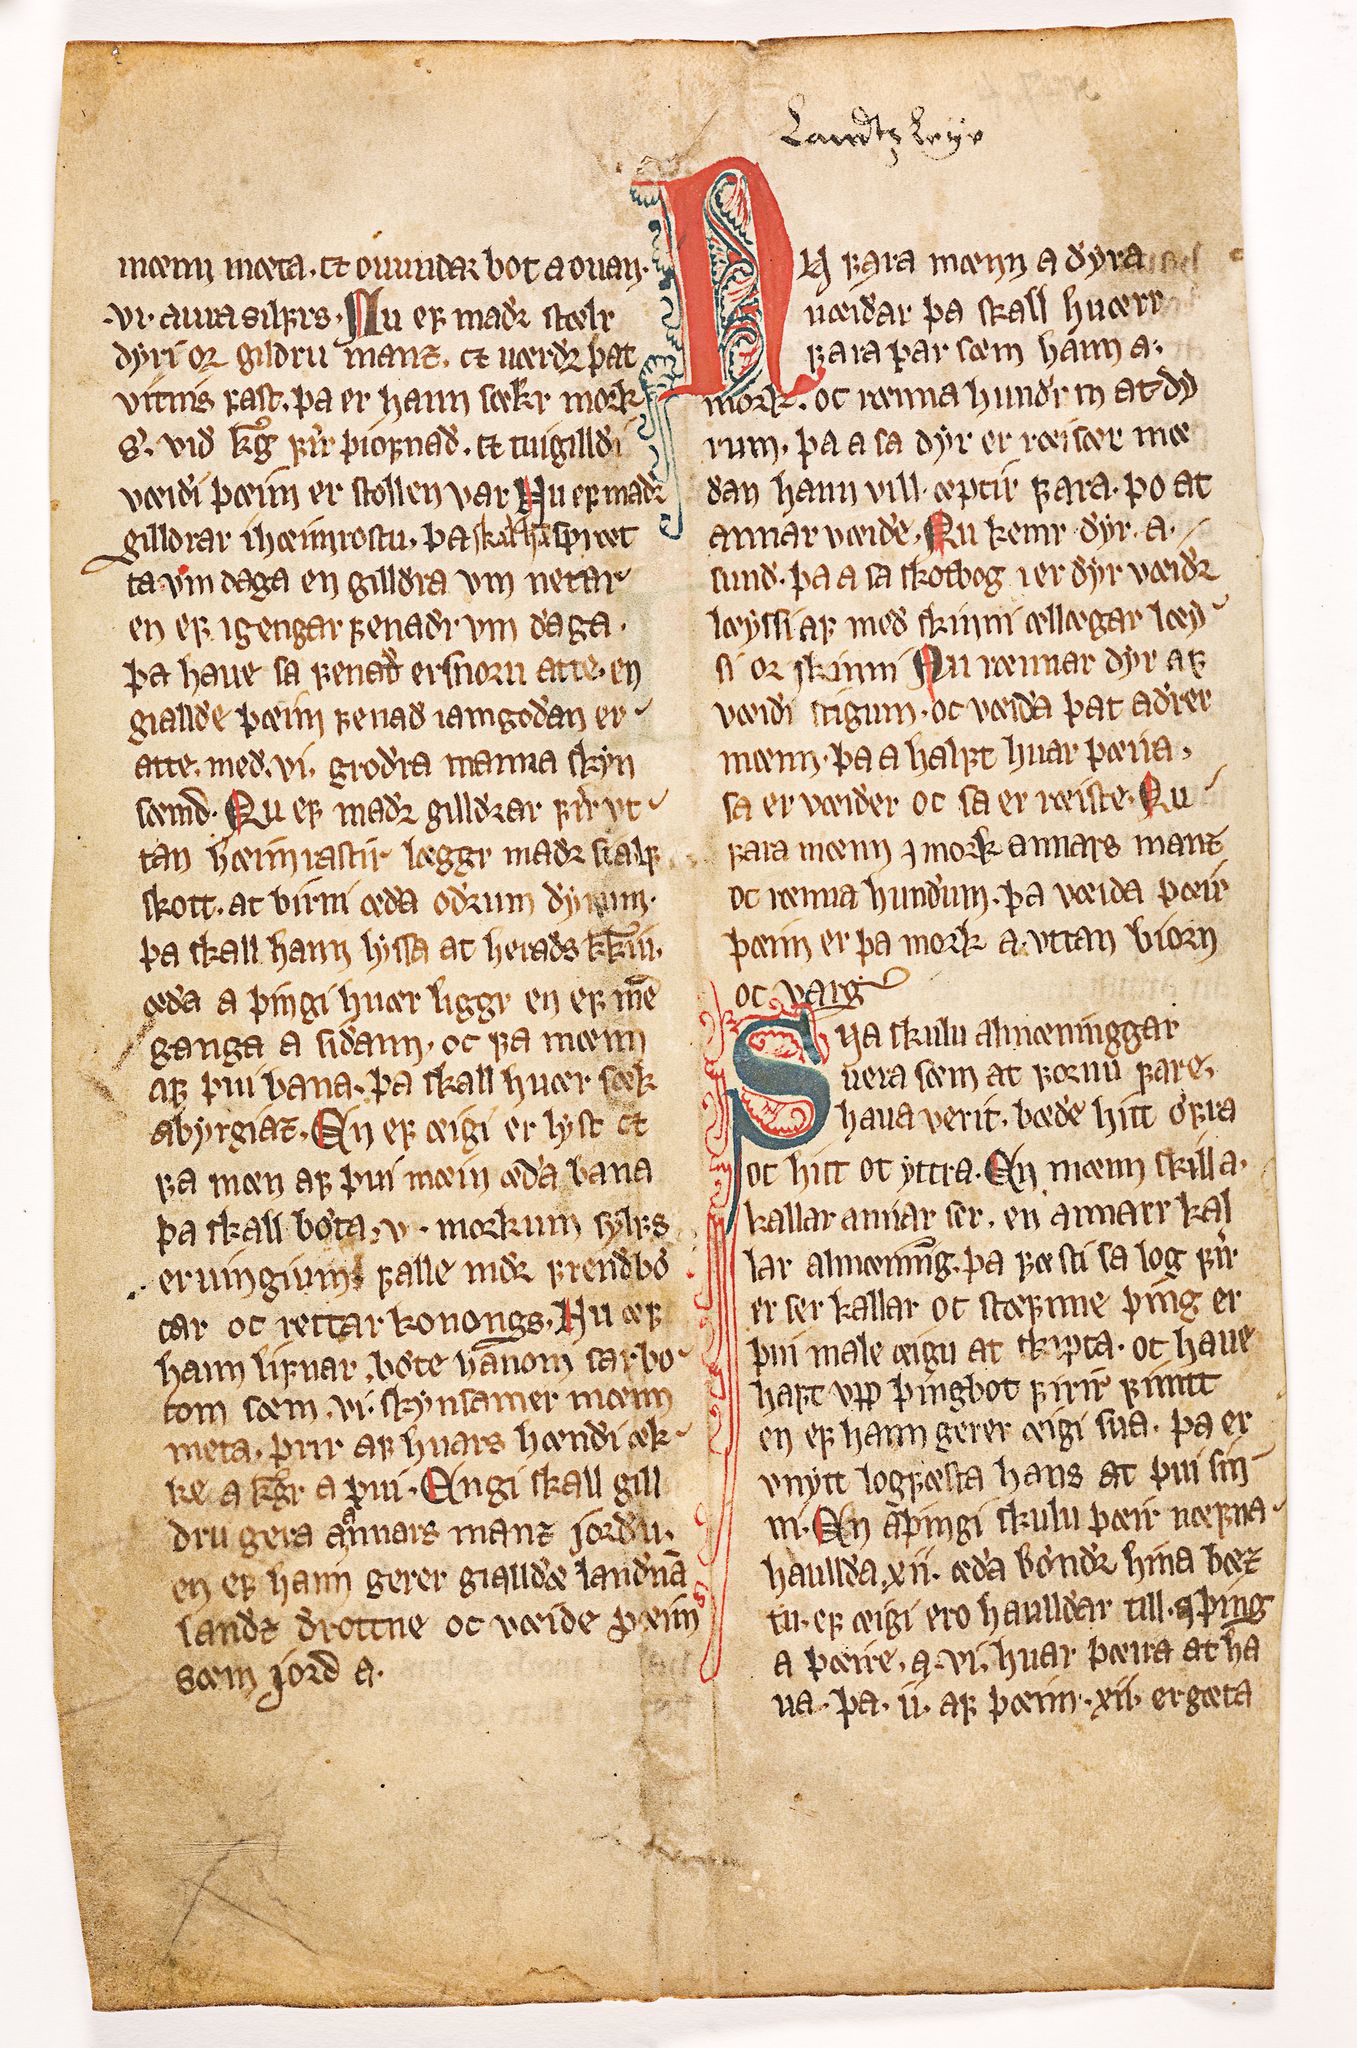 Landtz leye
mænn mæta. et ouundar bot a ouan.
.vi. aura silfrs. Nu ef madr stælr
dyri or gildru manz. et værdr þat
vitnis fast. þa er hann sækr mork
s. vid kg firir þiofnad. et tuigilldi
væidi þæim er stollen var Nu ef madr
gilldrar i hæimrostu. þa skal hann spræt
ta vm daga en gilldra vm netar
en ef i gengar fenadr vm daga.
þa haue sa fenad er snoru atte. en
giallde þæim fenad iamgodan er
atte. med. vi. grodra manna skyn
sæmd. Nu ef madr gilldrar firir vt
tan hæimrastir læggr madr sialf
skott. at birni æda odrum dyrum.
þa skall hann lyssa at herads kirkiu.
æda a þingi huær liggr en ef men
ganga a sidann. oc fa mænn
af þui bana. þa skall huær sæk
abyrgiaz. En ef æigi er lyst et
fa mæn af þui mæin æda bana
þa skall bota. v. morkum sylfs
er uingium falle nidr frendbo
tar oc rettar konongs. Nu æf
hann lifnar. bote hanom sarbo
tom sæm. vi. skynsamer mænn
meta. þrir af huars hændi æk
ke a kgr a þui. Engi skall gill
dru gera a annars manz jordu.
en ef hann gerer gialldæ landnam
landz drottne oc væide þæim
sæm jord a.
NU fara mænn a dyra
uæidar þa skall huærr
fara þar sæm hann a.
mork. oc rænna hundr in at dy
rum. þa a sa dyr er ræisær mæ
dan hann vill æptir fara. þo at
annar væide. Nu kemr dyr. a.
sund. þa a sa skotbog i er dyr væidr
læyssi af med skinni ællægar læy
si or skinni Nu rænnar dyr af
væidi stigum. oc væida þat adrer
mænn. þa a halft huar þæiia.
sa er væider oc sa er ræiste. Nu
fara mænn i mork annars manz
oc rænna hundum. þa væida þæir
þæim er þa mork a. vttan biorn
oc varg
Sua skulu almæninggar
uera sæm at fornu fare.
haua verit. bæde hitt ofra
oc hitt ot yttra. En mænn skill a.
kallar annar ser. en annarr kal
lar almæning. þa fæsti sa log firir
er ser kallar oc stæfnne þing er
þui male æigu at skipta. oc haue
haft vpp þingbot firir fimtt
en ef hann gerer æigi sua. þa er
vnytt logfæsta hans at þui sin
ni. En a þingi skulu þæir næfna
haullda. xii. æda bondr hina bæz
tu. ef æigi ero haulldar till. a þing
a þæire. a. vi. huar þæira at ha
ua. þa. ii. af þæim. xii. er gæta